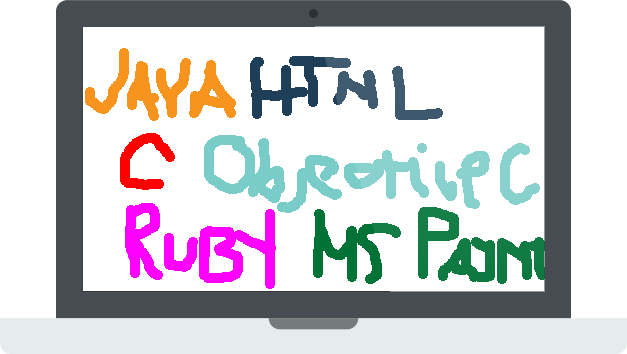 JAVA HTML
C Objective C
RUBY MS Paint